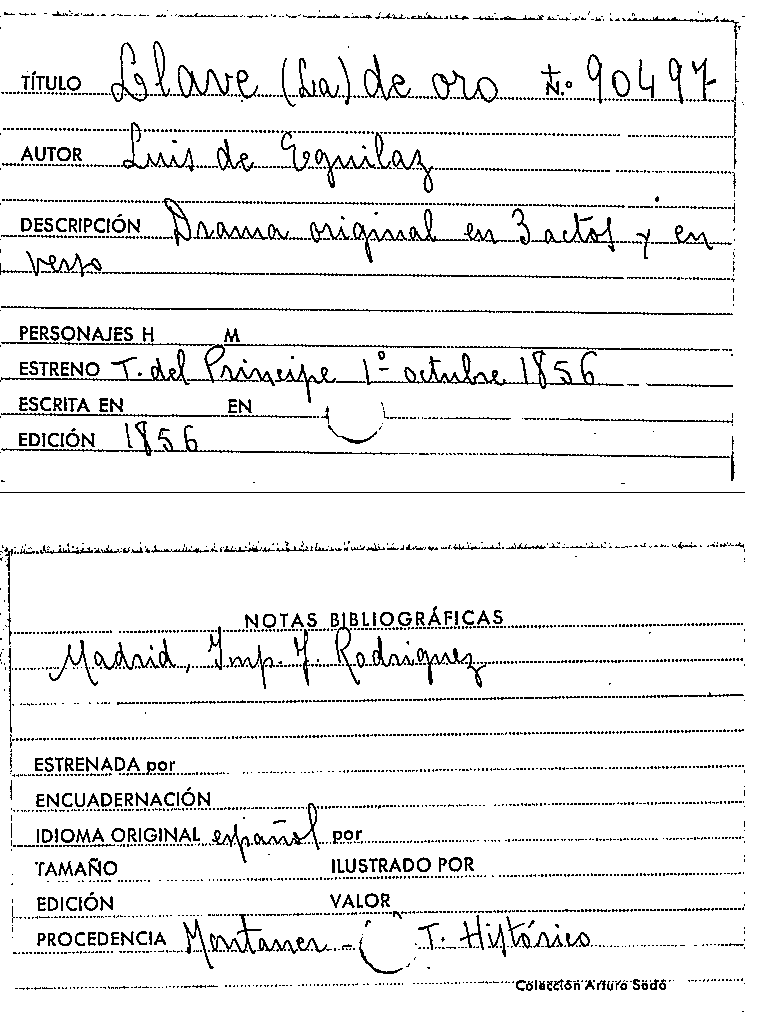 TÍTULO Llave (La) de oro N.º 90497
AUTOR Luis de Eguilaz
DESCRIPCIÓN Drama original en 3 actos y en
verso
PERSONAJES H M
ESTRENO T. del Principe 1º octubre 1856
ESCRITA EN EN
EDICIÓN 1856
NOTAS BIBLIOGRÁFICAS
Madrid, Imp. J. Rodriguez
ESTRENADA por
ENCUADERNACIÓN
IDIOMA ORIGINAL español por
TAMAÑO ILUSTRADO POR
EDICIÓN VALOR
PROCEDENCIA Montaner - T. Histórico
Colección Arturo Sedó